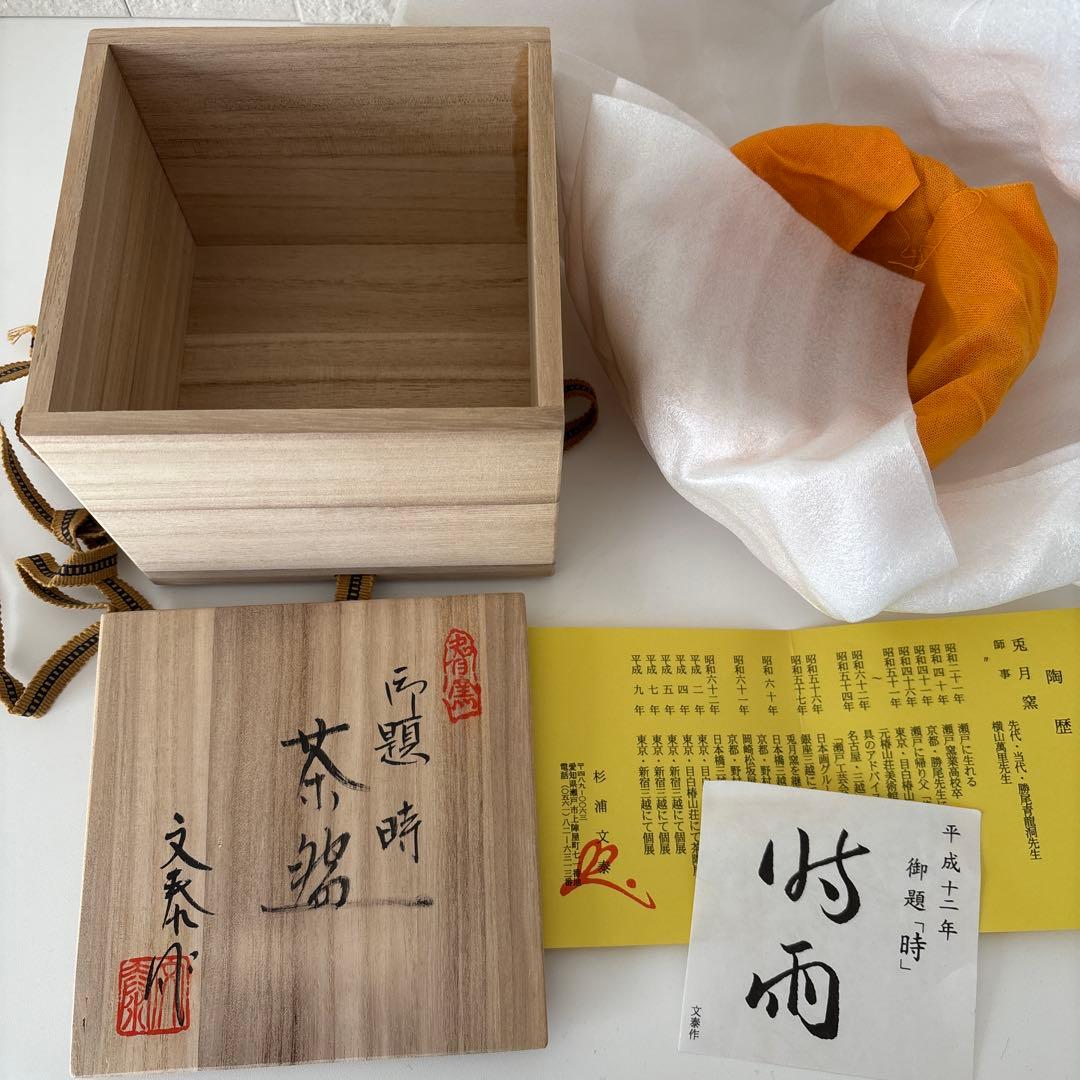 御題 時
茶盌
文泰作
陶歴
兎月窯 先代・当代・勝尾青龍洞先生
師事 横山萬里先生
昭和二十一年 瀬戸に生れる
昭和四十年 瀬戸窯業高校卒
昭和四十一年 京都・勝尾先生に
昭和四十六年 瀬戸に帰り父
昭和五十一年 東京・目白椿山
～
昭和六十二年 元椿山荘美術館
具のアドバイ
昭和五十四年 名古屋・三越に
「瀬戸工芸会
日本画グルー
昭和五十六年 銀座三越にて
昭和五十七年 兎月窯を継
日本橋三越
昭和六十年 京都・野村
昭和六十一年 岡崎松坂屋
日本橋三越
昭和六十二年 東京・日
平成二年 東京・目白椿山荘にて茶陶展
平成四年 東京・新宿三越にて個展
平成五年 東京・新宿三越にて個展
平成七年 東京・新宿三越にて個展
平成九年 東京・新宿三越にて個展
杉浦文泰
〒四八九-〇〇六三
愛知県瀬戸市上陣屋町七一番地
電話(〇五六一)八二-六三一三番
平成十二年
御題「時」
時雨
文泰作